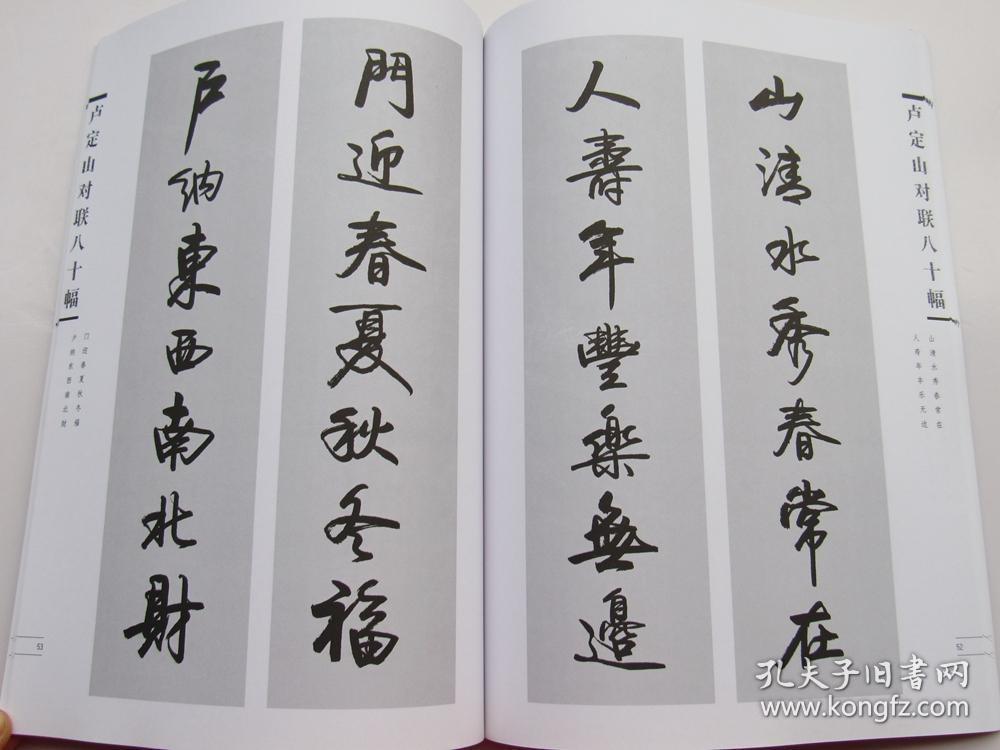 卢定山对联八十幅
山清水秀春常在
人寿年丰乐无边
山清水秀春常在
人壽年豐樂無邊
52
門迎春夏秋冬福
户納東西南北財
卢定山对联八十幅
门迎春夏秋冬福
户纳东西南北财
53
孔夫子旧书网
www.kongfz.com